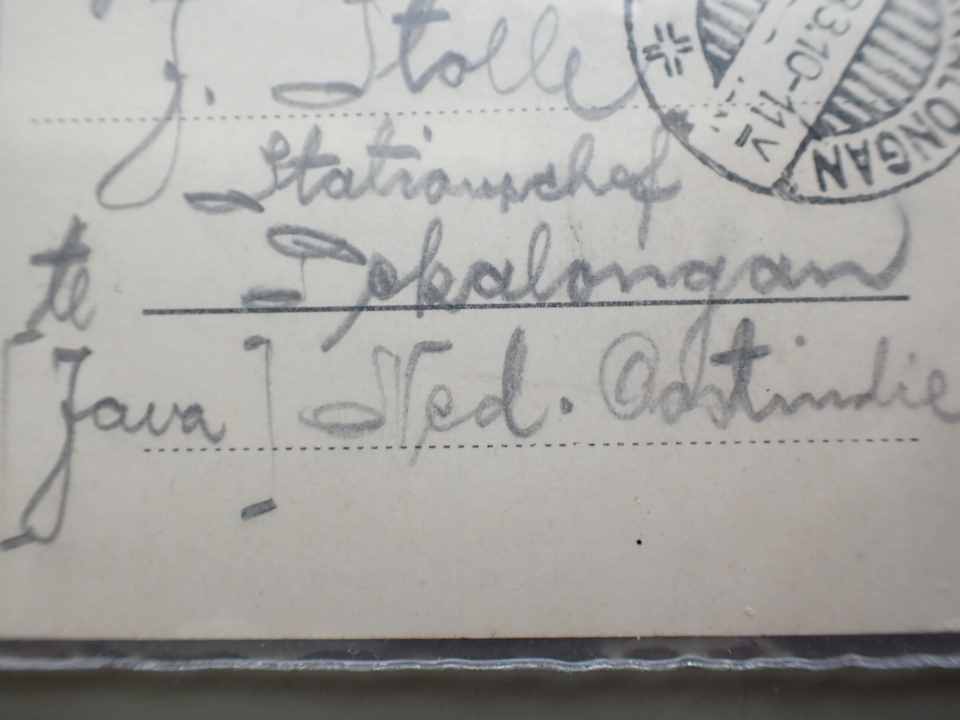 J. Stolle
Stationschef
te Pekalongan
[Java] Ned. Oostindie
3.10-11V
ALONGAN